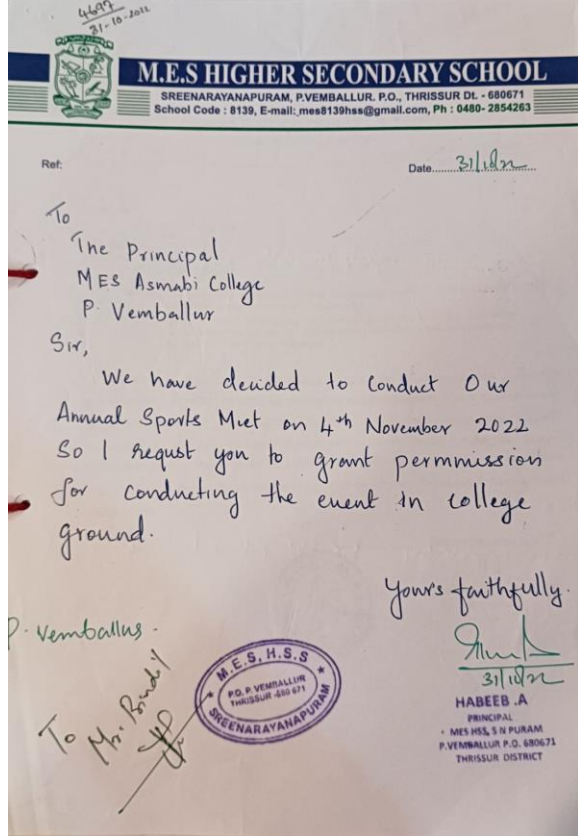 4697
31-10-2022
M.E.S HIGHER SECONDARY SCHOOL
SREENARAYANAPURAM, P.VEMBALLUR. P.O., THRISSUR Dt. - 680671
School Code : 8139, E-mail: mes8139hss@gmail.com, Ph : 0480- 2854263
Ref:
Date........31/10/22........
To
The Principal
MES Asmabi College
P. Vemballur
Sir,
We have decided to Conduct Our
Annual Sports Meet on 4th November 2022
So I requst you to grant permmission
for conducting the event in college
ground.
Yours faithfully.
P. Vemballur.
31/10/22
HABEEB .A
PRINCIPAL
MES HSS, S N PURAM
P.VEMBALLUR P.O. 680671
THRISSUR DISTRICT
M.E.S, H.S.S
P.O. P. VEMBALLUR
THRISSUR -680 671
SREENARAYANAPURAM
To